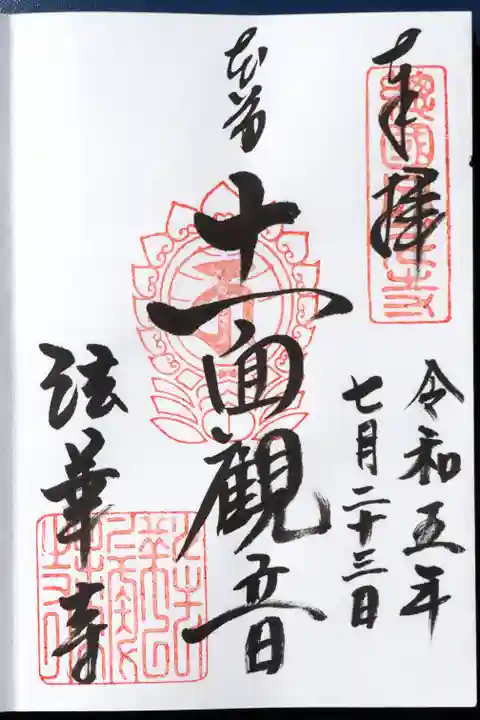 奉拝
令和五年
七月二十三日
本尊
十一面觀音
法華寺